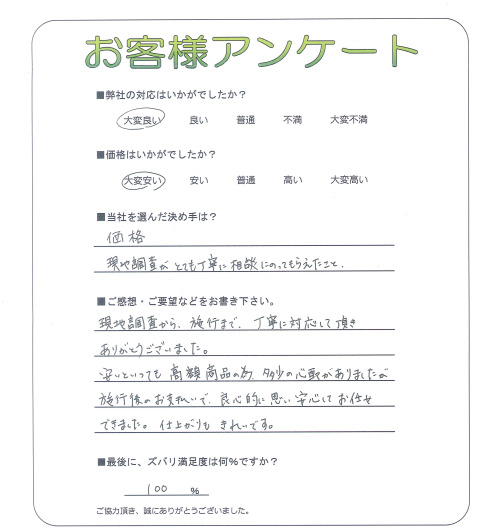 お客様アンケート
■弊社の対応はいかがでしたか?
大変良い 良い 普通 不満 大変不満
■価格はいかがでしたか?
大変安い 安い 普通 高い 大変高い
■当社を選んだ決め手は?
価格
現地調査がとても丁寧に相談にのってもらえたこと、
■ご感想・ご要望などをお書き下さい。
現地調査から、施行まで、丁寧に対応して頂き
ありがとうございました。
安いといっても高額商品の為、多少の心配がありましたが
施行後のお支払いで、良心的に思い安心してお任せ
できました。仕上がりもきれいです。
■最後に、ズバリ満足度は何%ですか?
100 %
ご協力頂き、誠にありがとうございました。